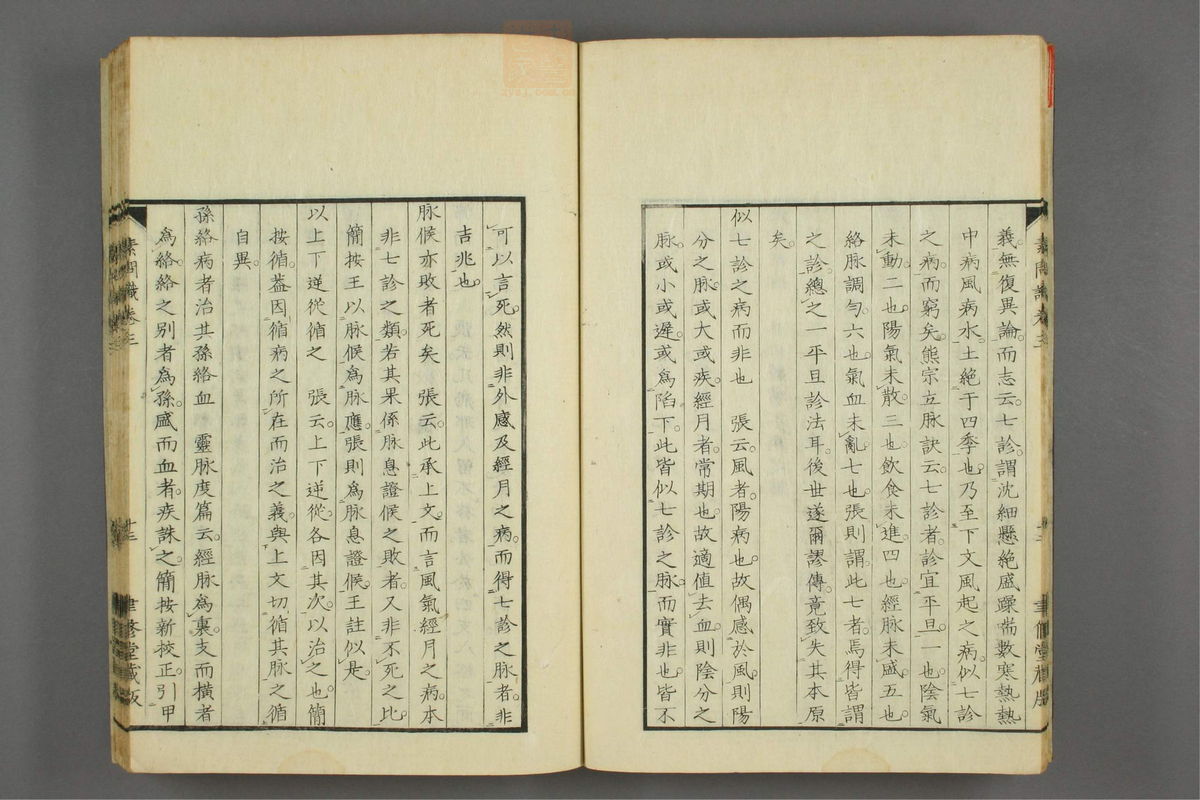 義。無復異論。而志云。七診。謂沈細懸絕盛躁喘數寒熱熱
中病風病水。土絕于四季也。乃至下文風起之病。似七診
之病。而窮矣。熊宗立脉訣云。七診者。診宜平旦。一也。陰氣
未動。二也。陽氣未散。三也。飲食未進。四也。經脉未盛。五也。
絡脉調勻。六也。氣血未亂。七也。張則謂。此七者。焉得皆謂
之診。總之一平旦診法耳。後世遂爾謬傳。竟致失其本原
矣。
似七診之病而非也 張云。風者。陽病也。故偶感於風。則陽
分之脉。或大或疾。經月者。常期也。故適值去血。則陰分之
脉。或小或遲。或為陷下。此皆似七診之脉。而實非也。皆不
可以言死。然則非外感及經月之病。而得七診之脉者。非
吉兆也。
脉候亦敗者死矣 張云。此承上文。而言風氣經月之病。本
非七診之類。若其果係脉息證候之敗者。又非不死之比。
簡按王以脉候為脉應。張則為脉息證候。王註似是。
以上下逆從循之 張云。上下逆從。各因其次。以治之也。簡
按循。蓋因循病之所在而治之義。與上文切循其脉之循
自異。
孫絡病者治其孫絡血 靈脉度篇云。經脉為裏。支而橫者
為絡。絡之別者為孫。盛而血者。疾誅之。簡按新校正。引甲
素問識卷三
聿修堂藏版